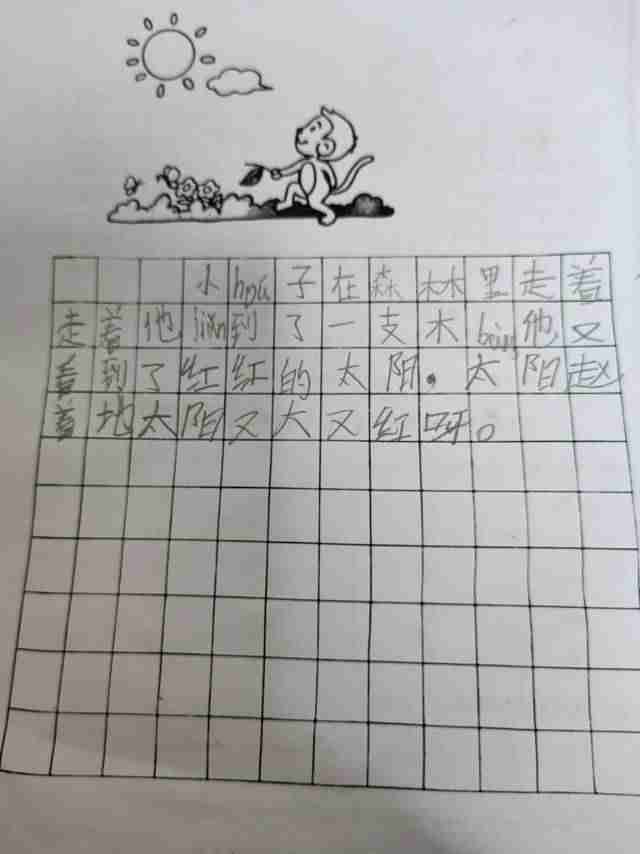 小hou子在森林里走着
走着他jiǎn到了一支木bàng他,又
看到了红红的太阳。太阳赵
着地太阳又大又红呀。